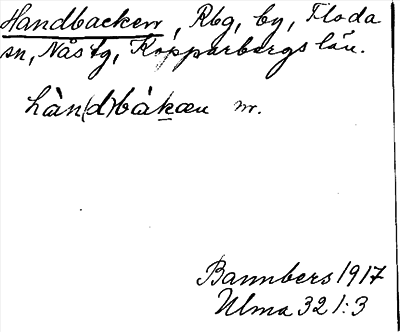 Handbacken, Rbg, by, Floda
sn, Nås tg, Kopparbergs län.
hàn(d)bàkæn nr.
Bannbers 1917
Ulma 32 1:3